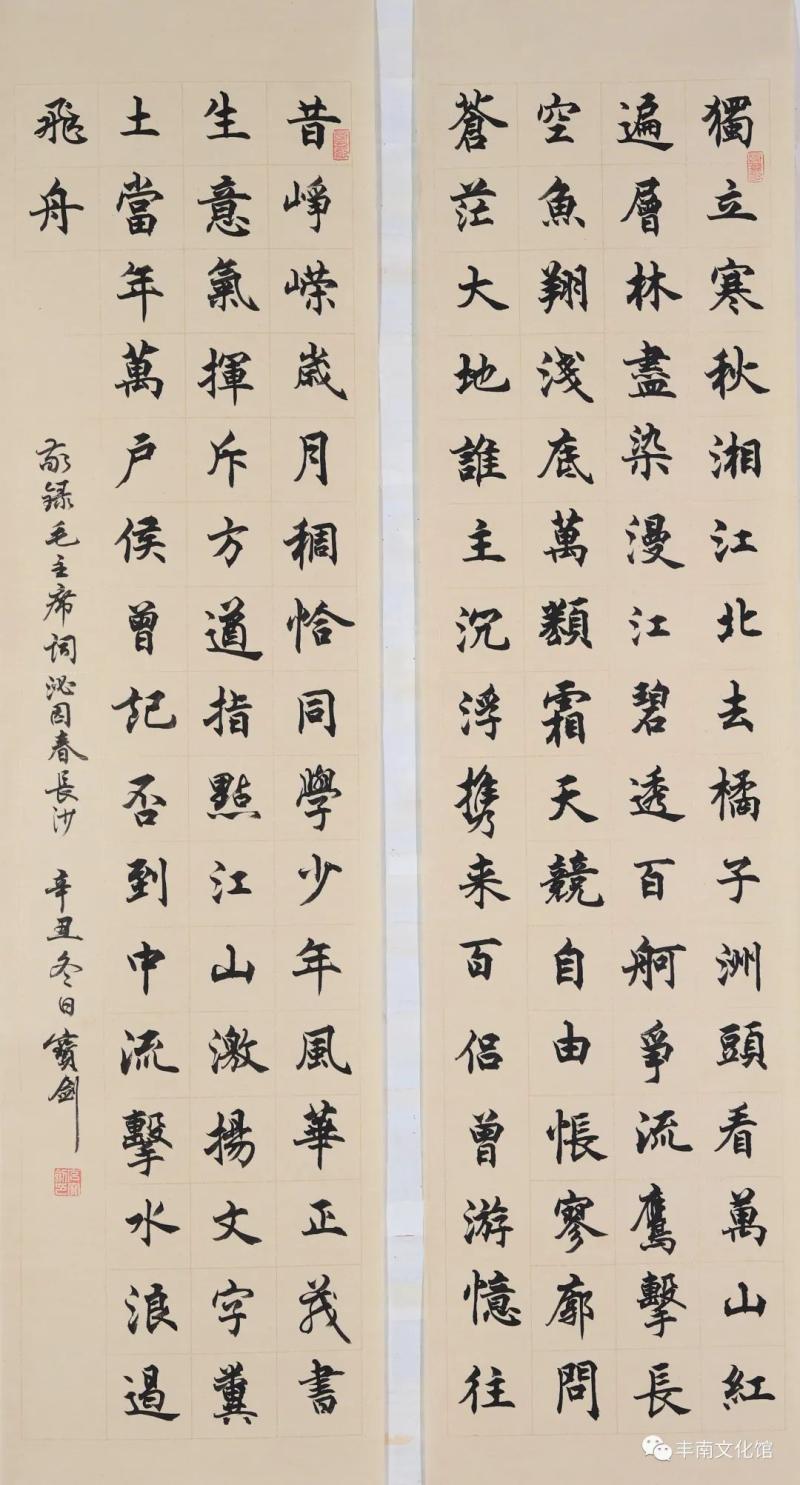 獨立寒秋湘江北去橘子洲頭看萬山紅
遍層林盡染漫江碧透百舸爭流鷹擊長
空魚翔淺底萬類霜天競自由悵寥廓問
蒼茫大地誰主沉浮攜来百侣曾游憶往
昔崢嶸歲月稠恰同學少年風華正茂書
生意氣揮斥方遒指點江山激揚文字糞
土當年萬户侯曾記否到中流擊水浪遏
飛舟
敬録毛主席詞沁园春長沙 辛丑冬日寶劍
丰南文化馆